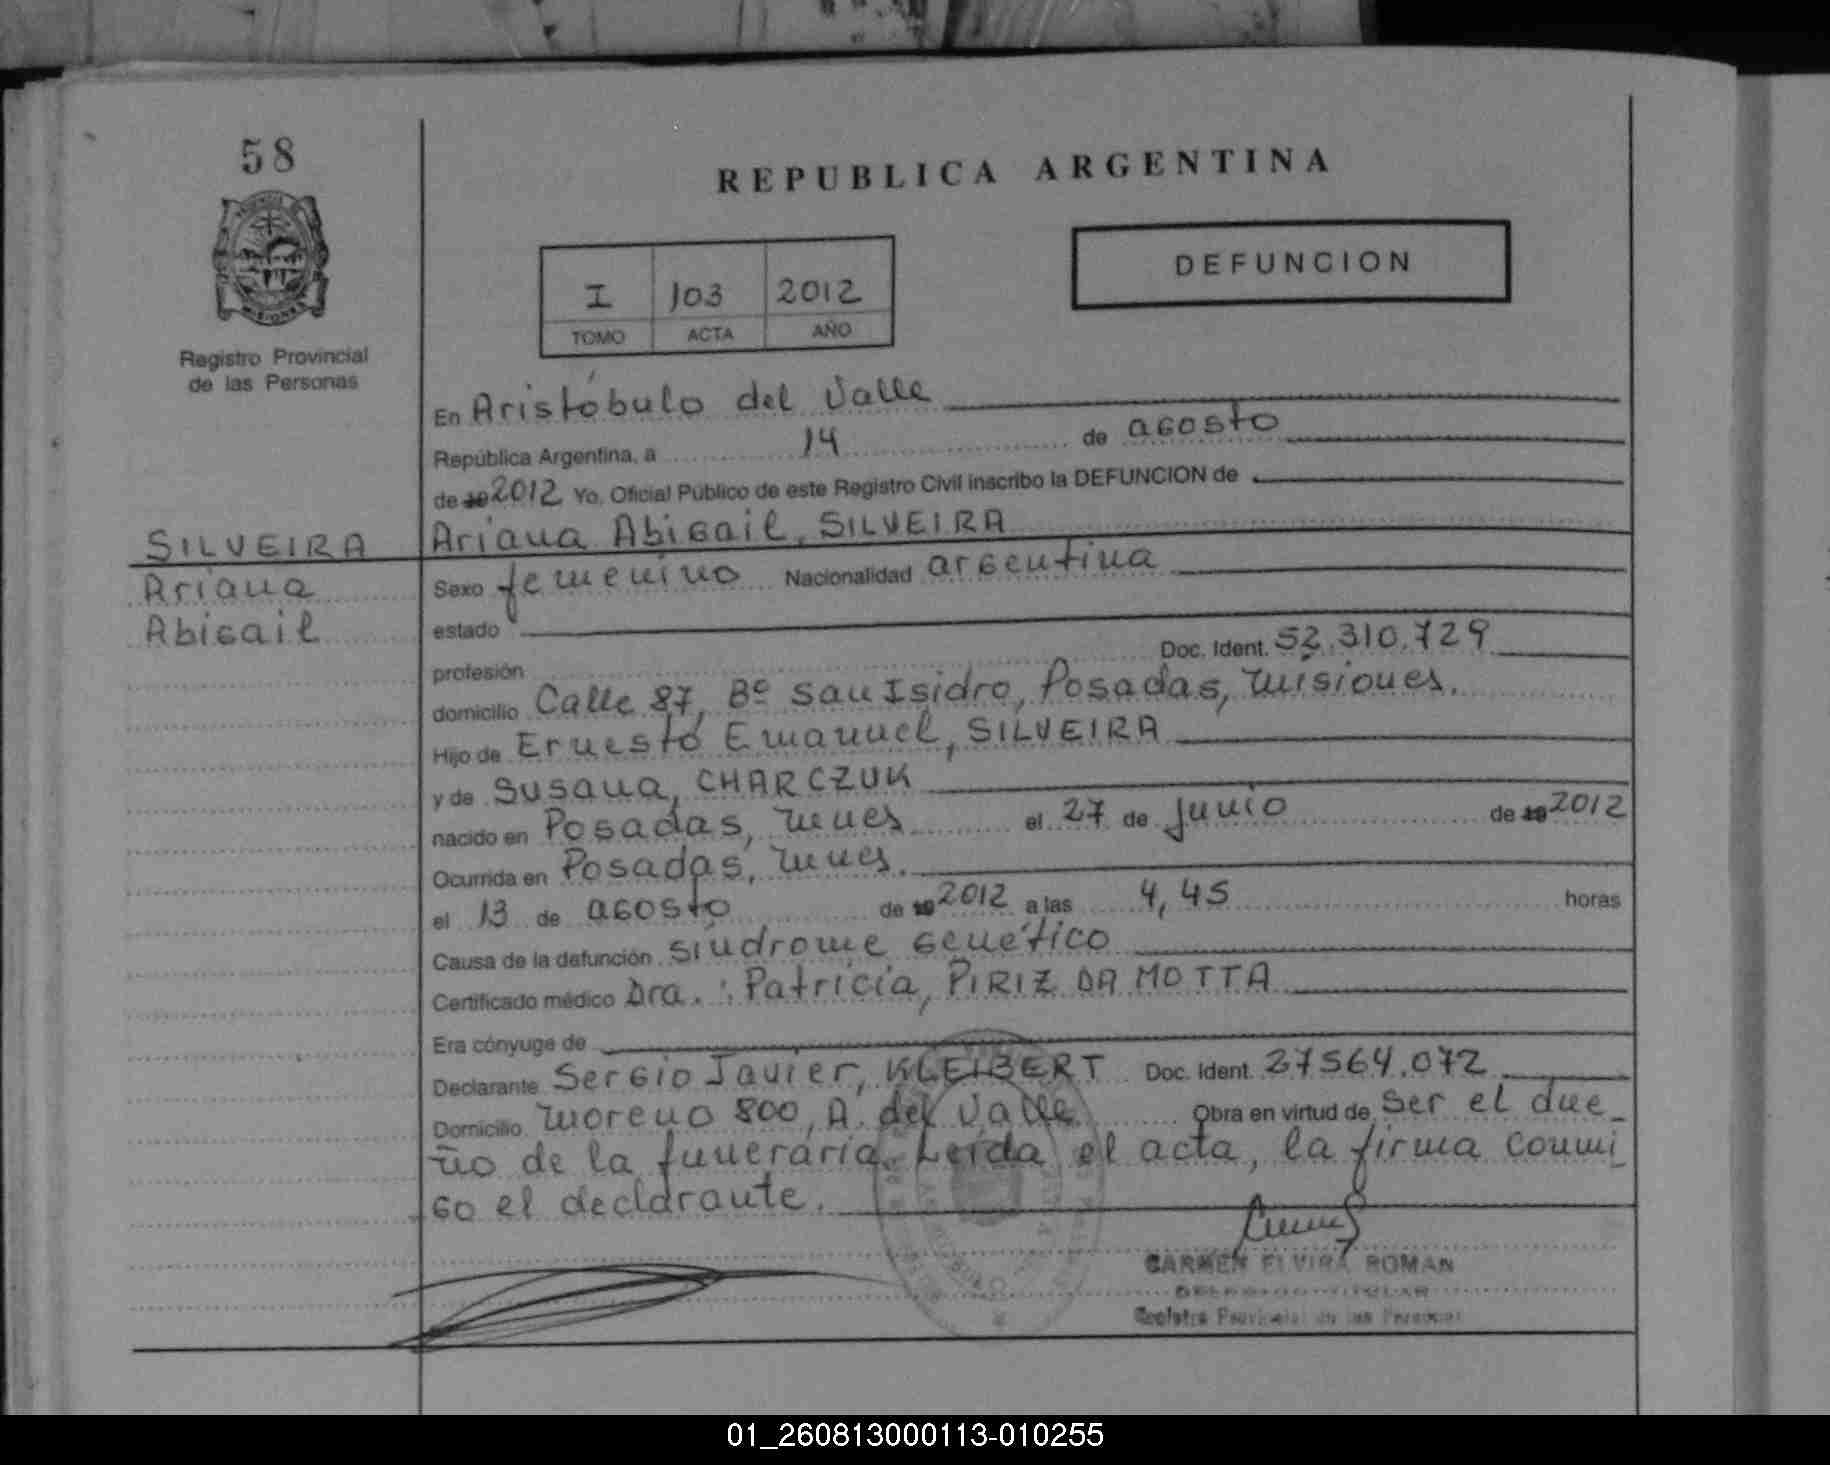 58
REPUBLICA ARGENTINA
MISIONES
Registro Provincial
de las Personas
I 103 2012
TOMO ACTA AÑO
DEFUNCION
En Aristóbulo del Valle
República Argentina, a 14 de agosto
de 19 2012 Yo, Oficial Público de este Registro Civil inscribo la DEFUNCION de
SILVEIRA
Ariana
Abigail
Ariana Abigail, SILVEIRA
Sexo femenino Nacionalidad argentina
estado
profesión Doc. Ident. 52.310.729
domicilio Calle 87, Bº San Isidro, Posadas, Misiones.
Hijo de Ernesto Emanuel, SILVEIRA
y de Susana, CHARCZUK
nacido en Posadas, Mnes el 27 de junio de 19 2012
Ocurrida en Posadas, Mnes.
el 13 de agosto de 19 2012 a las 4,45 horas
Causa de la defunción síndrome genético
Certificado médico Dra.: Patricia, PIRIZ DA MOTTA
Era cónyuge de
Declarante Sergio Javier, KLEIBERT Doc. Ident. 27564.072
Domicilio Moreno 800, A. del Valle Obra en virtud de ser el due_
ño de la funeraria. Leída el acta, la firma conmi_
go el declarante.
CARMEN ELVIRA ROMAN
Registro Provincial de las Personas
01_260813000113-010255